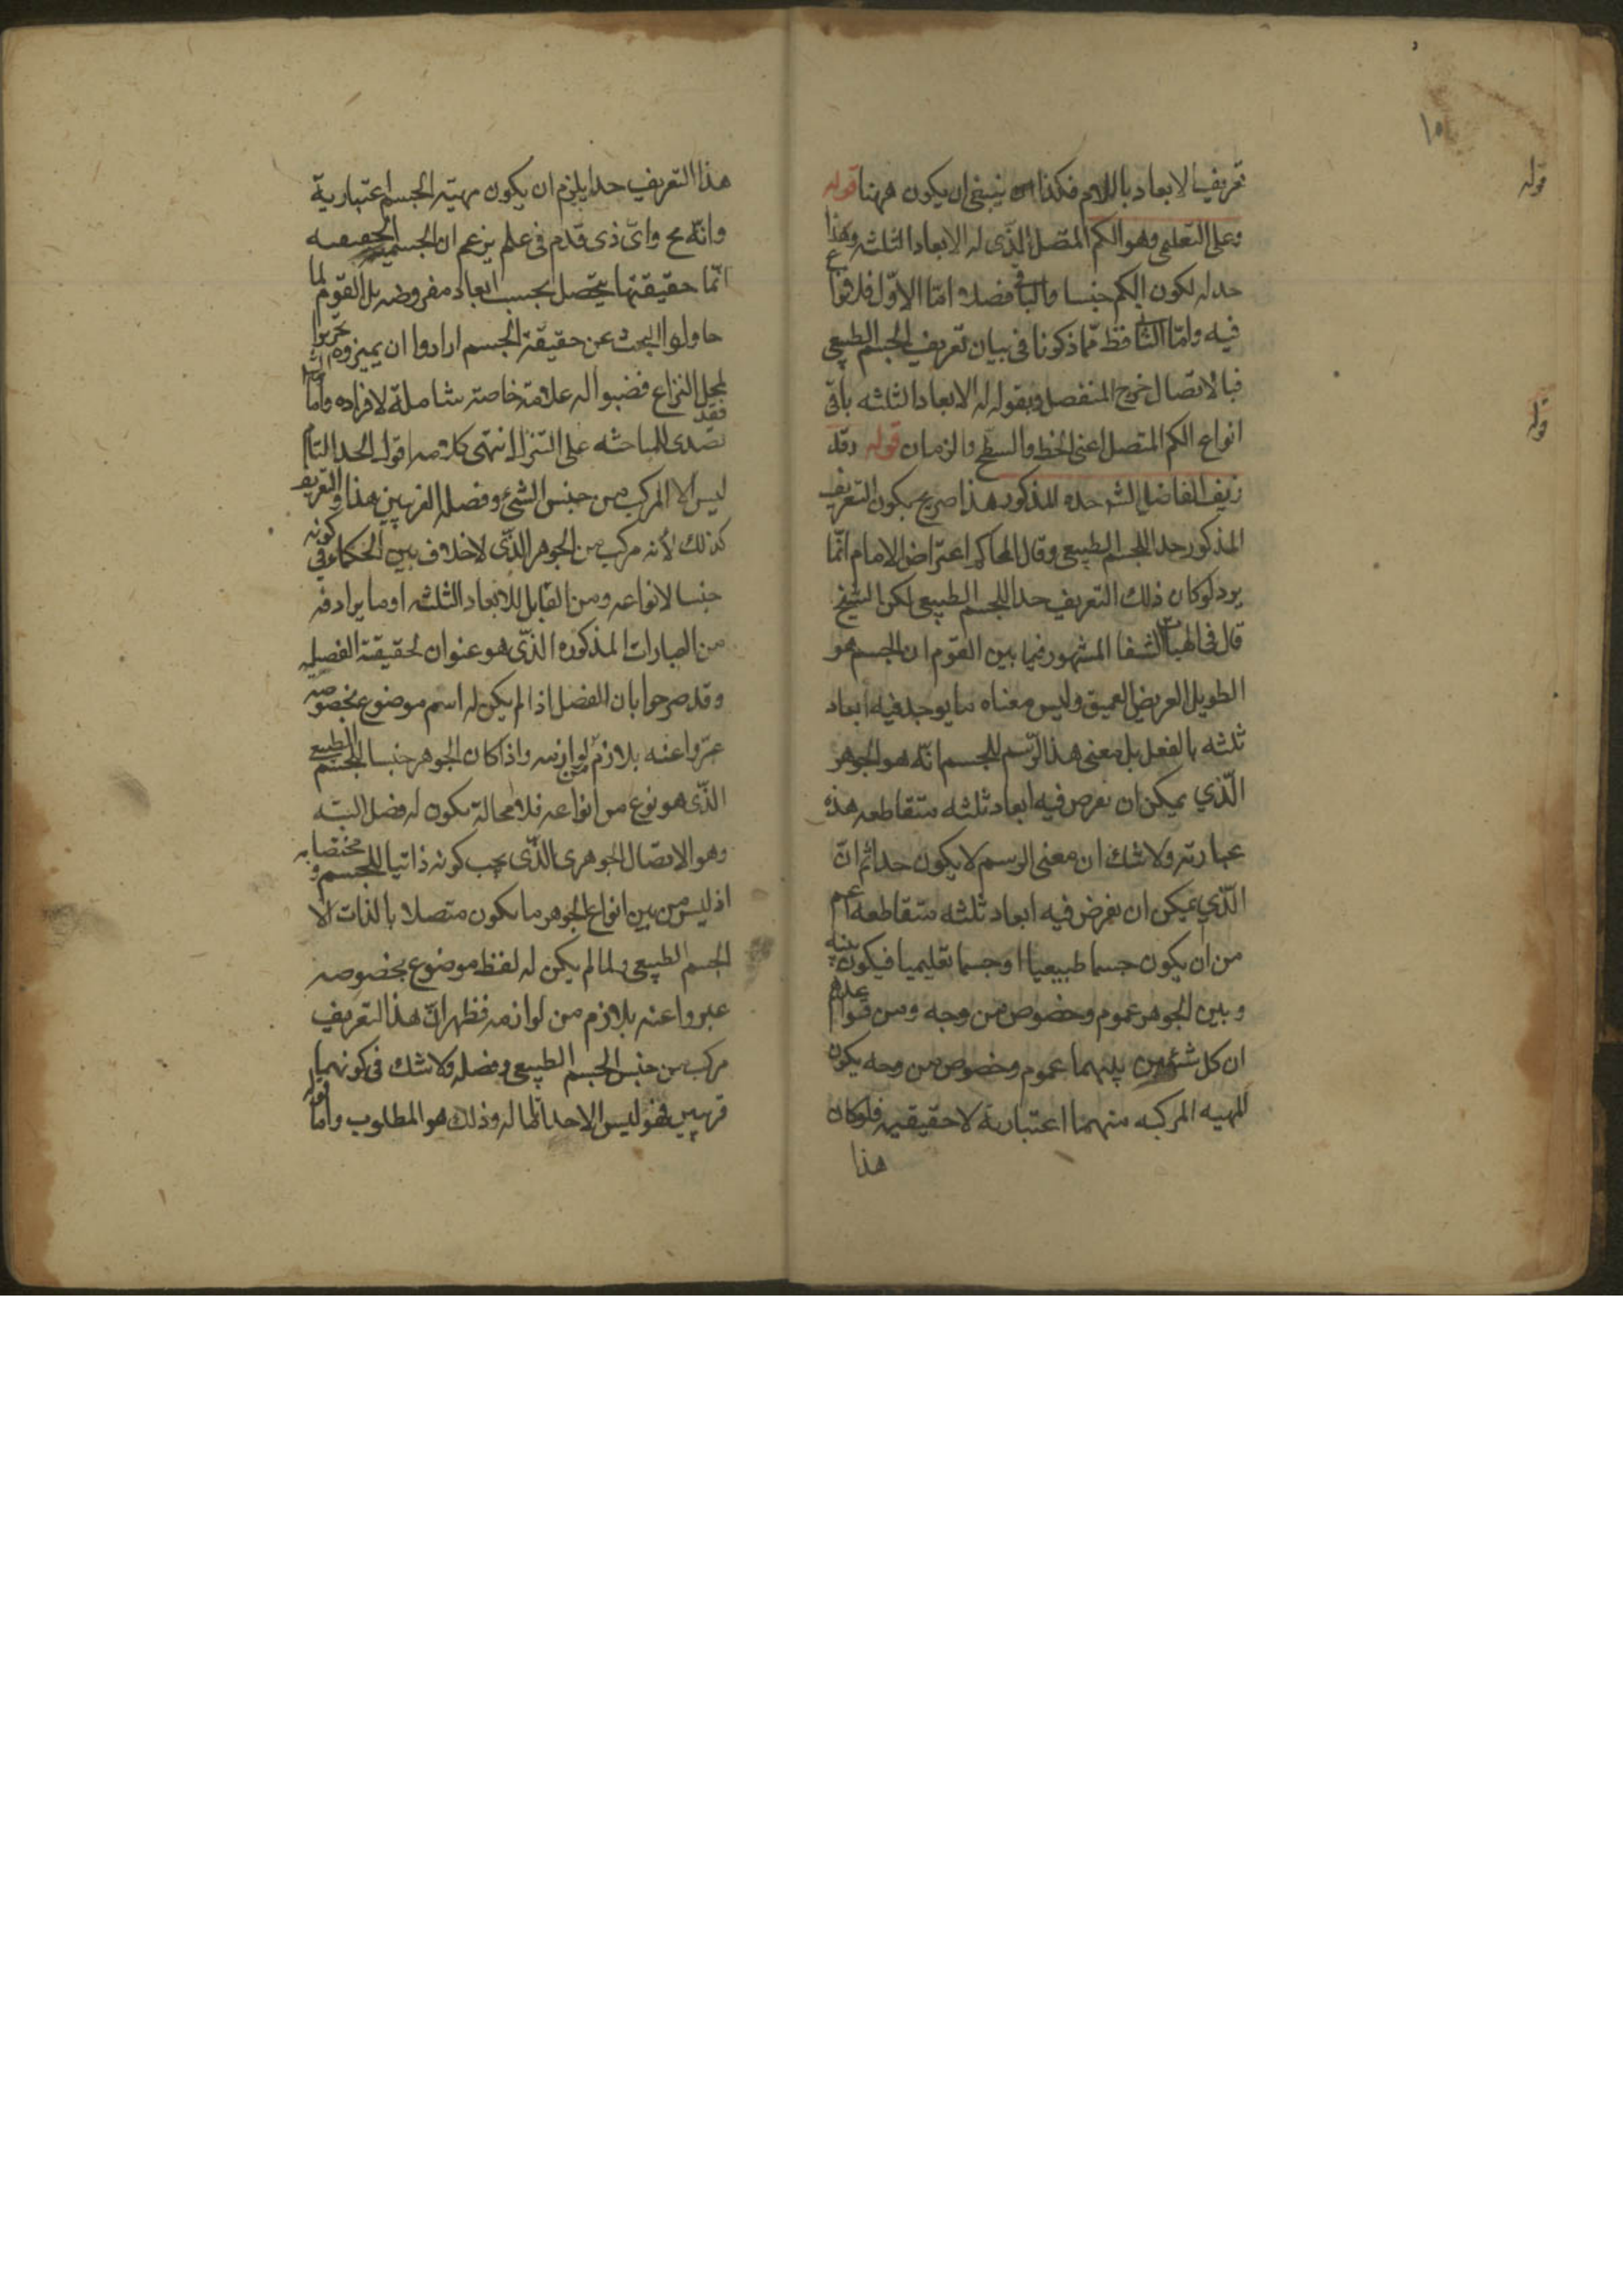 ١٥
قوله
قوله
تعريف الابعاد باللام فكذا ينبغى ان يكون ههنا قوله
وعلى التعلمى وهو الكم المتصل الذى له الابعاد الثلثه وهذا
حد له لكون الكم جنسا والباقى فصلا اما الاول فلا نزاع
فيه واما الثانى فظ مما ذكرنا فى بيان تعريف الجسم الطبيعى
فبالاتصال خرج المنفصل وبقوله له الابعاد الثلثه باقى
انواع الكم المتصل اعنى الخط والسطح والزمان قوله وقد
زيف الفاضل الشه حده المذكور هذا صريح بكون التعريف
المذكور حدا للجسم الطبيعى وقال المحاكم اعتراض الامام انما
يرد لو كان ذلك التعريف حدا للجسم الطبيعى لكن الشيخ
قال فى الهيات الشفا المشهور فيما بين القوم ان الجسم هو
الطويل العريض العميق وليس معناه ما يوجد فيه ابعاد
ثلثه بالفعل بل معنى هذا الرسم للجسم انه هو الجوهر
الذي يمكن ان يفرض فيه ابعاد ثلثه متقاطعه هذه
عبارته ولا شك ان معنى الرسم لا يكون حدا ثم ان
الذي يمكن ان يفرض فيه ابعاد ثلثه متقاطعه اعم
من ان يكون جسما طبيعيا او جسما تعليميا فيكون بينه
وبين الجوهر عموم وخصوص من وجه ومن قواعدهم
ان كل شيئين بينهما عموم وخصوص من وجه يكون
المهيه المركبه منهما اعتبارية لا حقيقيه فلو كان
هذا
هذا التعريف حدا يلزم ان يكون مهية الجسم اعتبارية
وانه مح واى ذى قدم فى علم يزعم ان الجسميه الحقيقيه
انما حقيقتها يتحصل بحسب ابعاد مفروضه بل القوم لما
حاولوا البحث عن حقيقة الجسم ارادوا ان يميزوه تحريرا
لمحل النزاع فنصبوا له علامة خاصة شاملة لافراده واما الشه
فقد تصدى للمباحثه على التنزل انتهى كلامه اقول الحد التام
ليس الا المركب من جنس الشئ وفصله القريبين وهذا التعريف
كذلك لانه مركب من الجوهر الذى لا خلاف بين الحكماء فى كونه
جنسا لانواعه ومن القابل للابعاد الثلثه او ما يرادفه
من العبارات المذكوره الذى هو عنوان لحقيقة الفصليه
وقد صرحوا بان الفصل اذا لم يكن له اسم موضوع بخصوصه
عبروا عنه بلازم من لوازمه واذا كان الجوهر جنسا للجسم الطبيعى
الذى هو نوع من انواعه فلا محالة يكون له فصل البته
وهو الاتصال الجوهرى الذى يجب كونه ذاتيا للجسم ومختصا به
اذ ليس من بين انواع الجوهر ما يكون متصلا بالذات الا
الجسم الطبيعى ولما لم يكن له لفظ موضوع بخصوصه
عبروا عنه بلازم من لوازمه فظهر ان هذا التعريف
مركب من جنس الجسم الطبيعى وفصله ولا شك فى كونهما
قريبين فهو ليس الا حدا تاما له وذلك هو المطلوب واما قوله